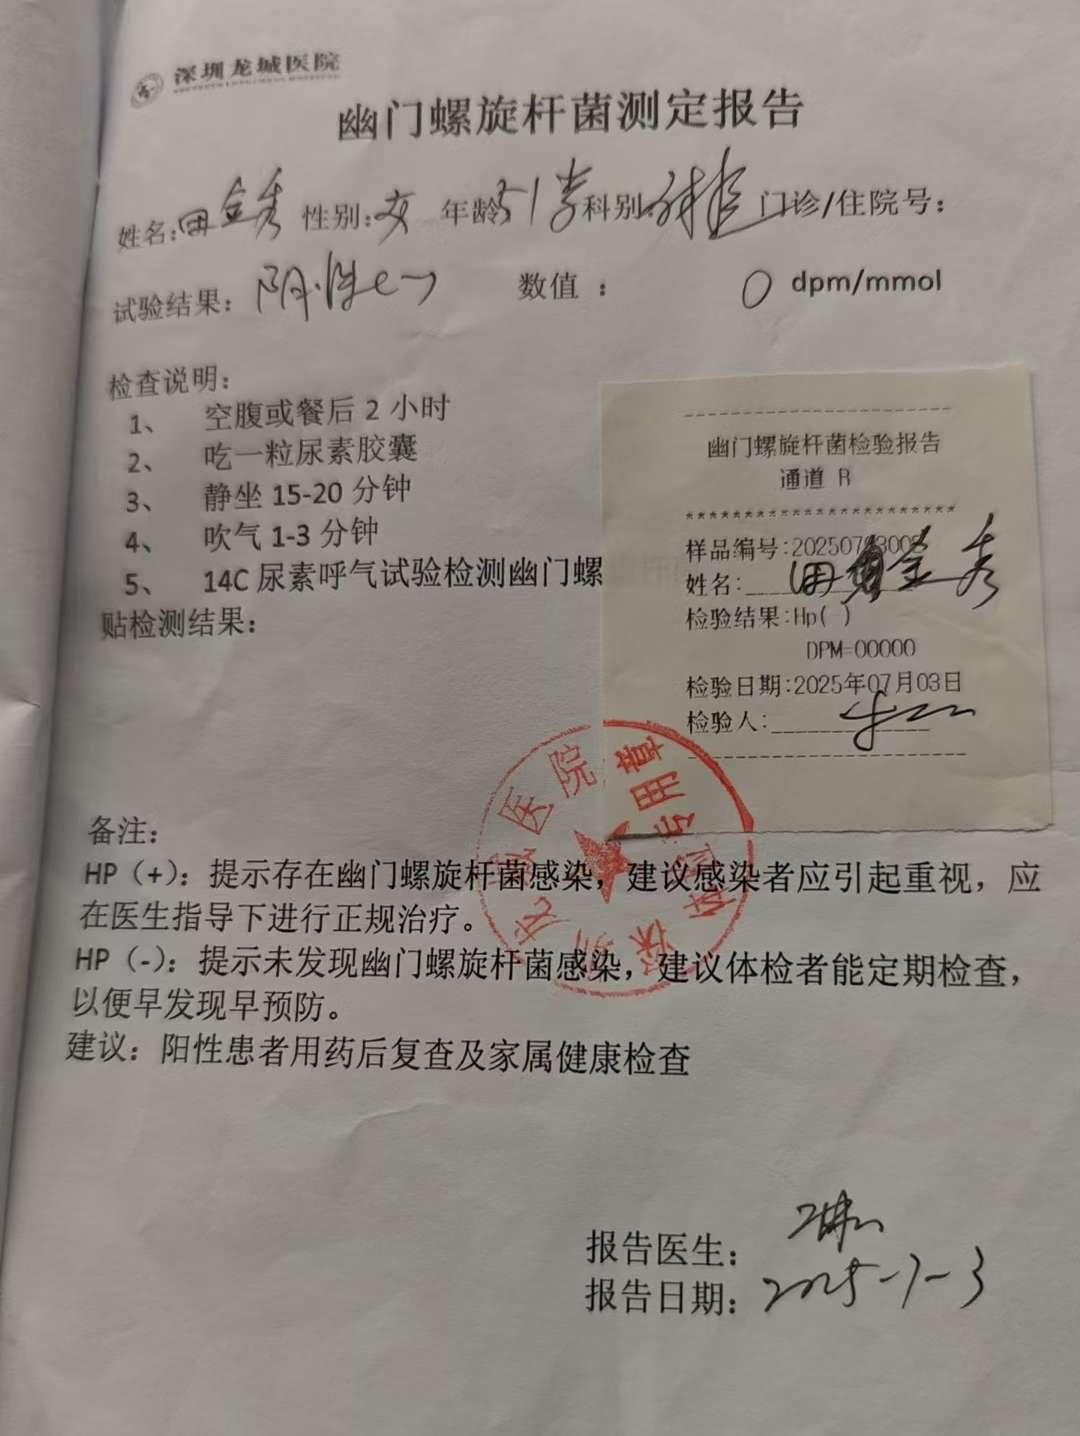 深圳龙城医院
幽门螺旋杆菌测定报告
姓名:田金秀 性别:女 年龄51岁 科别:体检 门诊/住院号:
试验结果: 阴性(-) 数值 : 0 dpm/mmol
检查说明:
1、 空腹或餐后 2 小时
2、 吃一粒尿素胶囊
3、 静坐 15-20 分钟
4、 吹气 1-3 分钟
5、 14C 尿素呼气试验检测幽门螺
贴检测结果:
幽门螺旋杆菌检验报告
通道 R
************************
样品编号:20250703008
姓名: 田金秀
检验结果:Hp( )
DPM=00000
检验日期:2025年07月03日
检验人:
深圳龙城医院体检专用章
备注:
HP(+): 提示存在幽门螺旋杆菌感染, 建议感染者应引起重视, 应
在医生指导下进行正规治疗。
HP(-): 提示未发现幽门螺旋杆菌感染, 建议体检者能定期检查,
以便早发现早预防。
建议: 阳性患者用药后复查及家属健康检查
报告医生:
报告日期: 2025-7-3